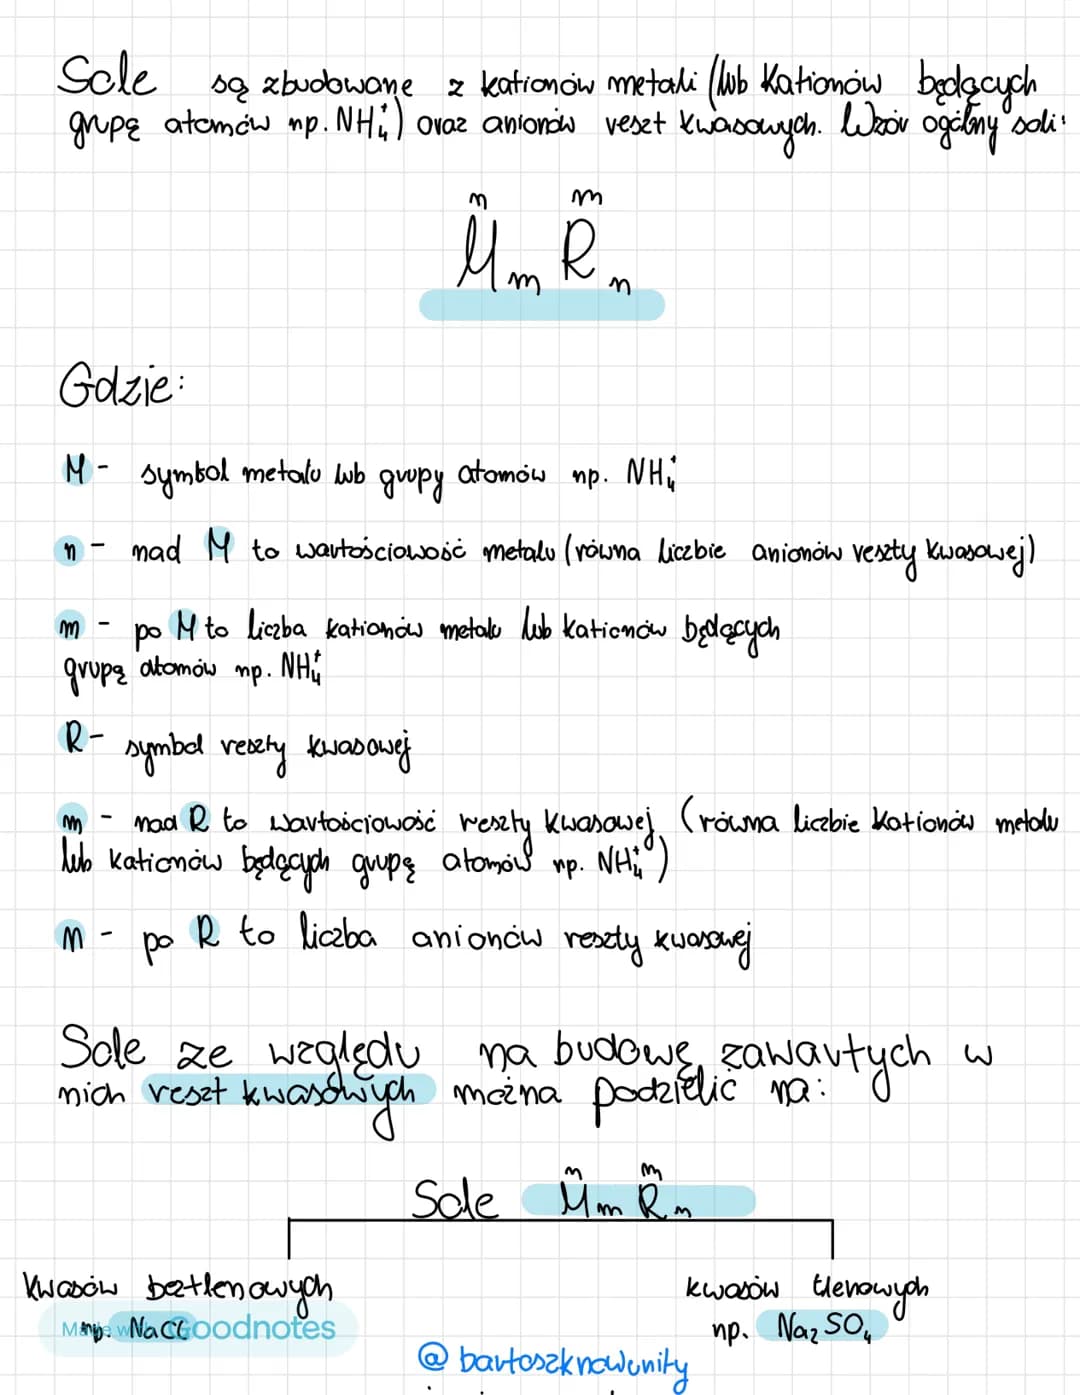 Sole są zbudowane z kationów metali (lub kationów będących
grupą atomów np. NH₄⁺) oraz anionów reszt kwasowych. Wzór ogólny soli:
n m
MₘRₙ
Gdzie:
M - symbol metalu lub grupy atomów np. NH₄⁺
n - nad M to wartościowość metalu (równa liczbie anionów reszty kwasowej)
m - po M to liczba kationów metalu lub kationów będących
grupą atomów np. NH₄⁺
R - symbol reszty kwasowej
m - nad R to wartościowość reszty kwasowej (równa liczbie kationów metalu
lub kationów będących grupą atomów np. NH₄⁺)
n - po R to liczba anionów reszty kwasowej
Sole ze względu na budowę zawartych w
nich reszt kwasowych można podzielić na:
n m
Sole MₘRₙ
kwasów beztlenowych kwasów tlenowych
np. NaCl np. Na₂SO₄
Made with Goodnotes
@bartoszknowunity